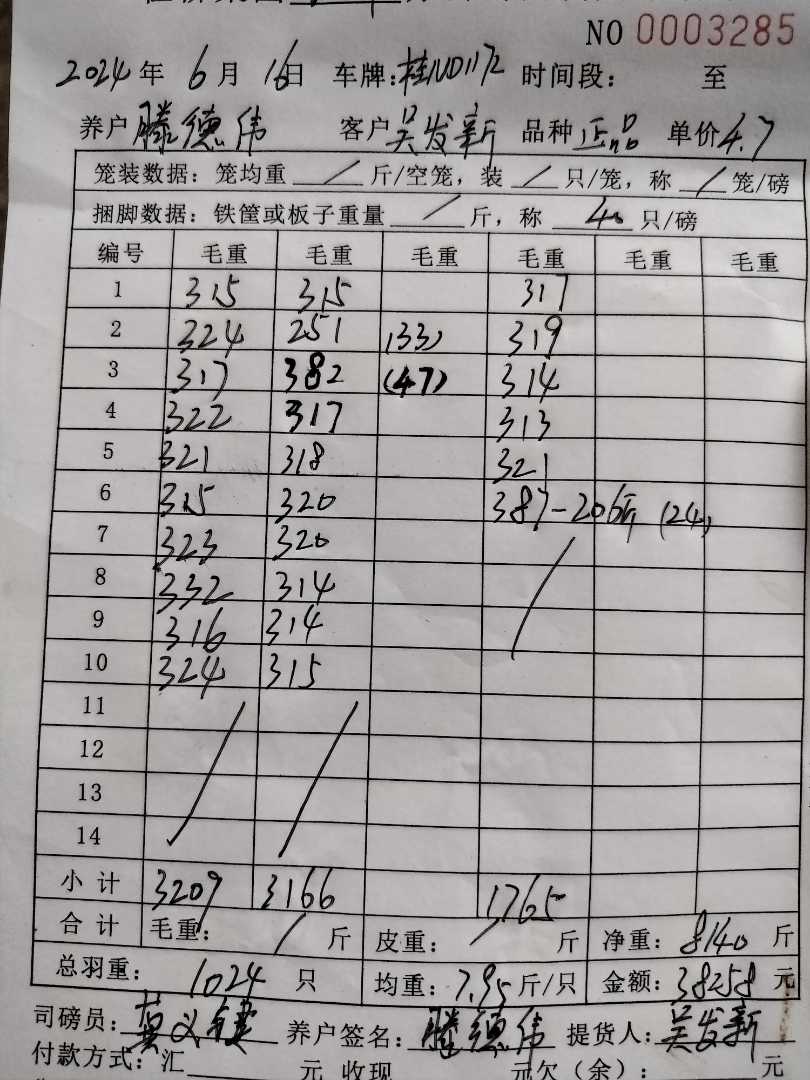 NO 0003285
2024 年 6 月 16 日 车牌:桂ND1172 时间段: 至
养户 滕德伟 客户 吴发新 品种 正品 单价 4.7
笼装数据: 笼均重 / 斤/空笼, 装 / 只/笼, 称 / 笼/磅
捆脚数据: 铁筐或板子重量 / 斤, 称 40 只/磅
编号 毛重 毛重 毛重 毛重 毛重 毛重
1 315 315 317
2 324 251 (33) 319
3 317 382 (47) 314
4 322 317 313
5 321 318 321
6 315 320 387-206斤 (24)
7 323 320
8 332 314
9 316 314
10 324 315
11
12
13
14
小计 3209 3166 1765
合计 毛重: / 斤 皮重: / 斤 净重: 8140 斤
总羽重: 1024 只 均重: 7.95 斤/只 金额: 38258 元
司磅员: 养户签名: 滕德伟 提货人: 吴发新
付款方式: 汇 元 收现 元欠(余): 元